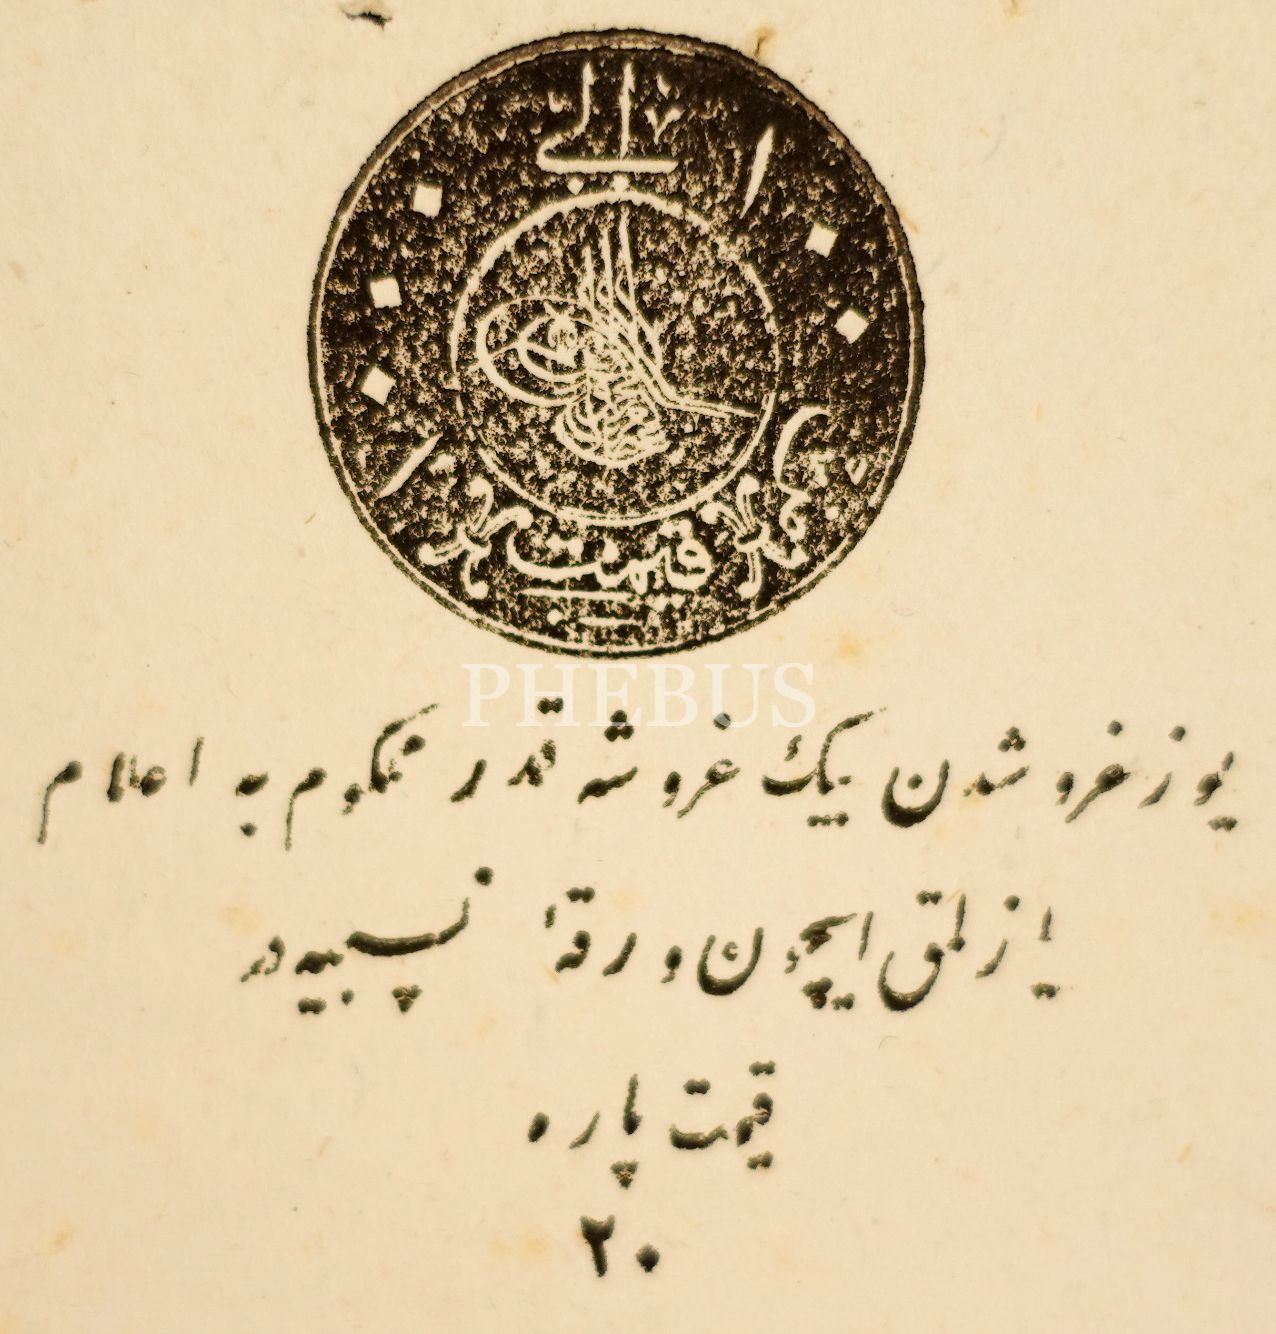 قیمت
PHEBUS
یوز غروشدن بیك غروشه قدر محکوم به اعلام
یازلمق ایچون ورقهٔ نسبیه در
قیمت پاره
٢٠